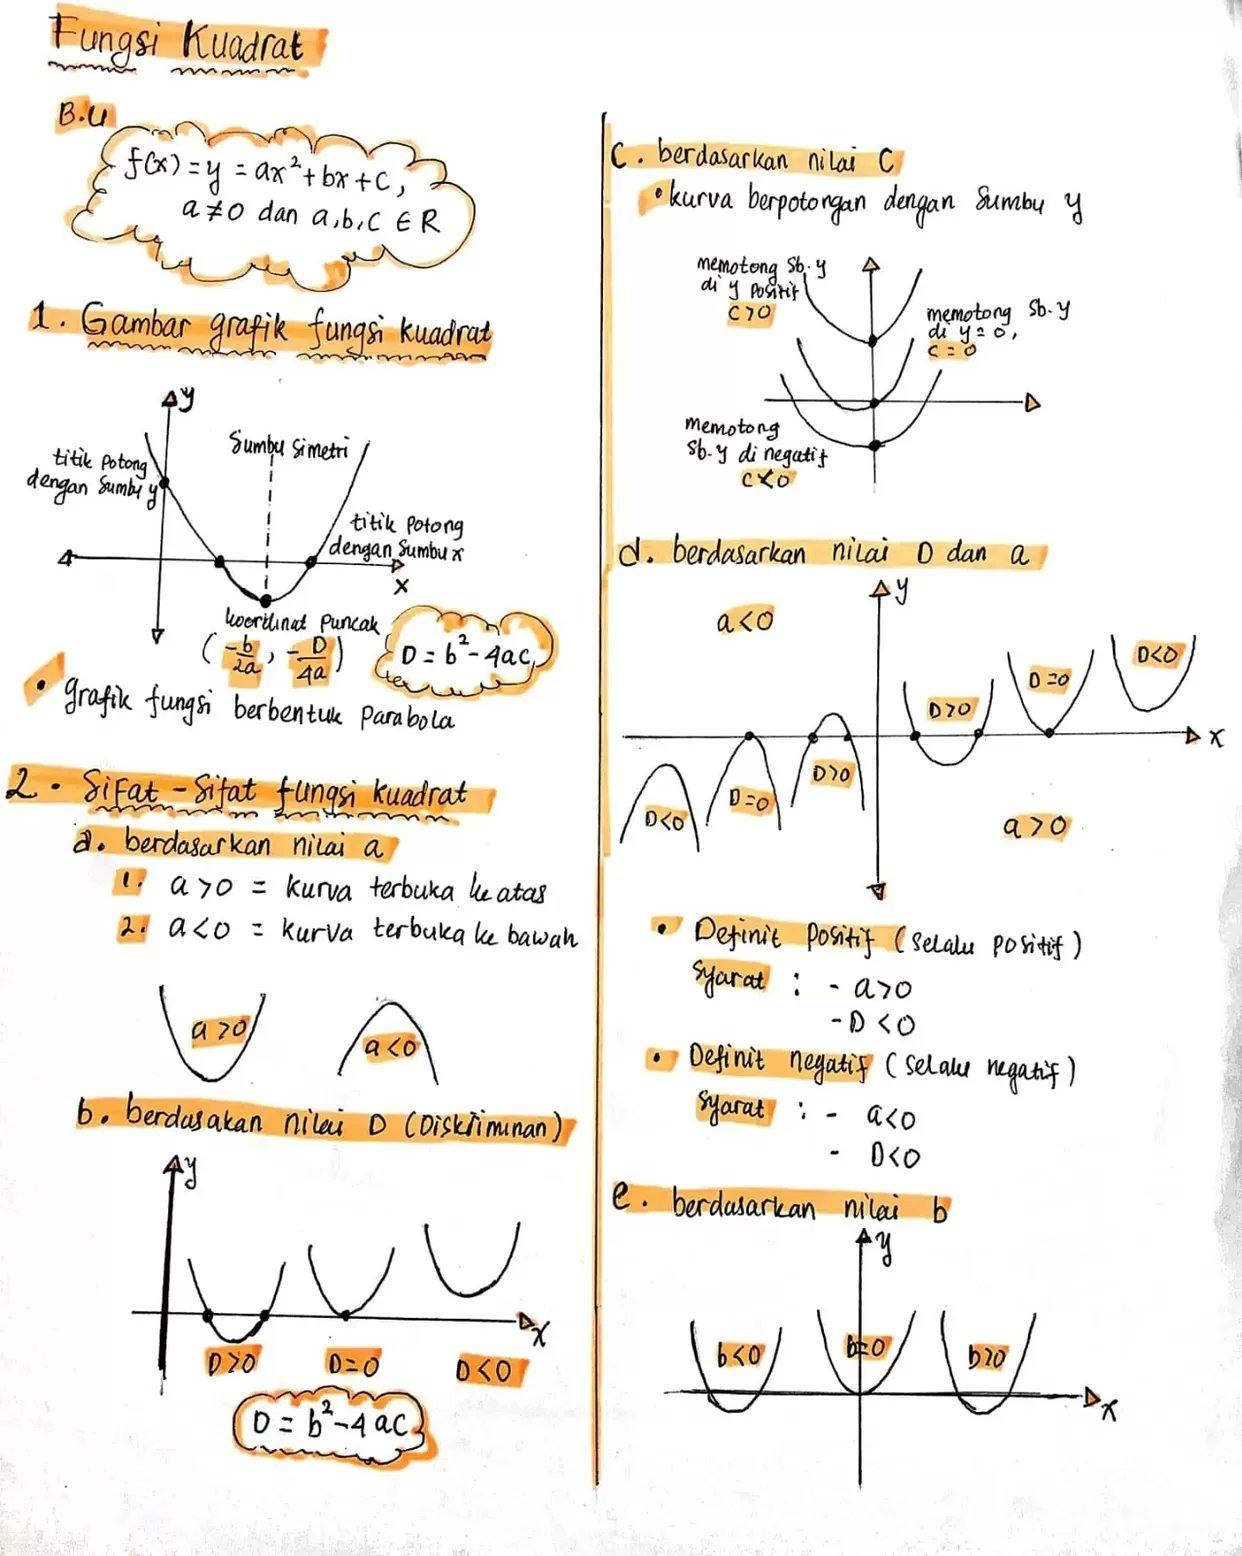 Fungsi Kuadrat
B.U
f(x) = y = ax² + bx + c,
a ≠ 0 dan a,b,c ∈ R
1. Gambar grafik fungsi kuadrat
y
Sumbu simetri
titik potong
dengan sumbu y
titik potong
dengan sumbu x
x
koordinat puncak
(-b/2a, -D/4a)
D = b² - 4ac
• grafik fungsi berbentuk parabola
2. Sifat-Sifat fungsi kuadrat
a. berdasarkan nilai a
1. a > 0 = kurva terbuka ke atas
2. a < 0 = kurva terbuka ke bawah
a > 0
a < 0
b. berdasakan nilai D (Diskriminan)
y
x
D > 0
D = 0
D < 0
D = b² - 4ac
C. berdasarkan nilai C
• kurva berpotongan dengan sumbu y
memotong sb. y
di y positif
c > 0
memotong sb. y
di y = 0,
c = 0
memotong
sb. y di negatif
c < 0
d. berdasarkan nilai D dan a
y
a < 0
D < 0
D = 0
D > 0
x
D > 0
D = 0
D < 0
a > 0
• Definit positif (selalu positif)
syarat : - a > 0
- D < 0
• Definit negatif (selalu negatif)
syarat : - a < 0
- D < 0
e. berdasarkan nilai b
y
b < 0
b = 0
b > 0
x